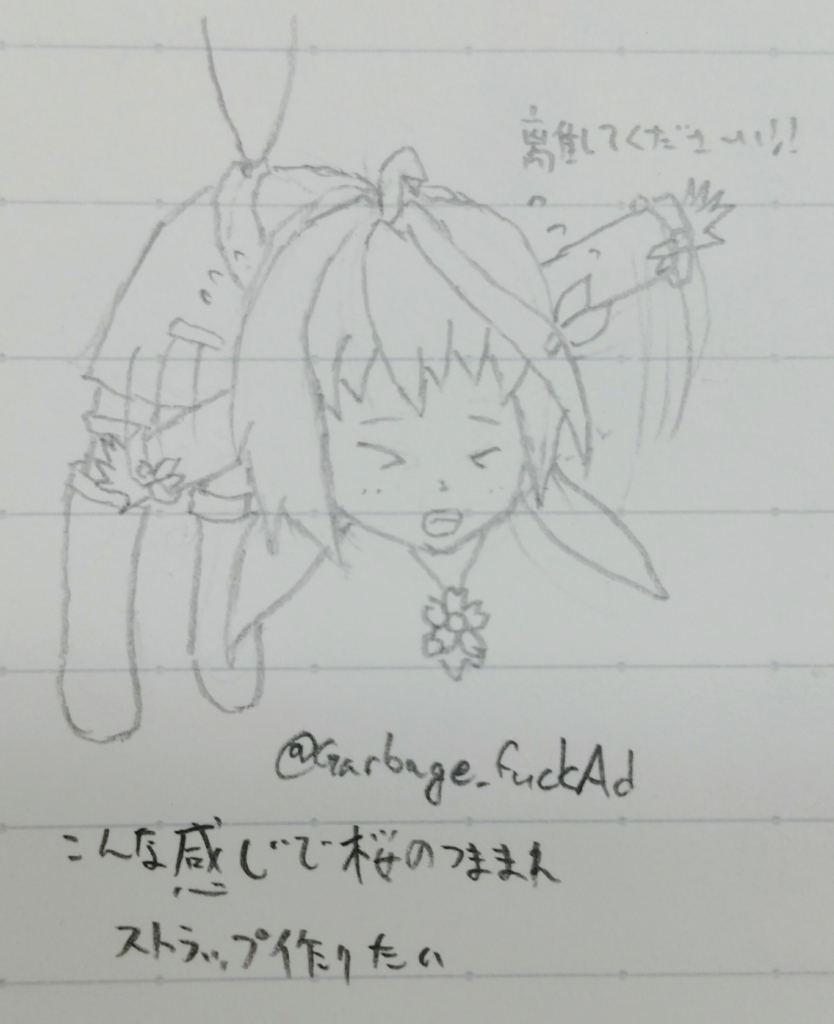 離してくださーい!!
@Garbage_fuckAd
こんな感じで桜のつままれ
ストラップ作りたい